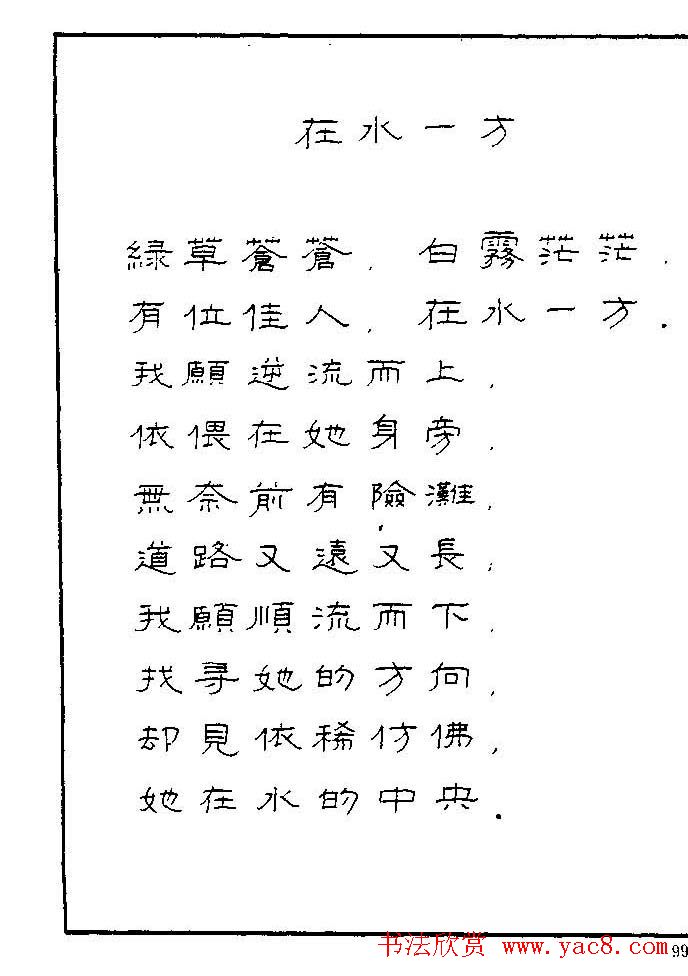 在水一方
綠草蒼蒼，白霧茫茫，
有位佳人，在水一方．
我願逆流而上，
依偎在她身旁，
無奈前有險灘，
道路又遠又長，
我願順流而下，
找尋她的方向，
却見依稀仿佛，
她在水的中央．
书法欣赏 www.yac8.com
99